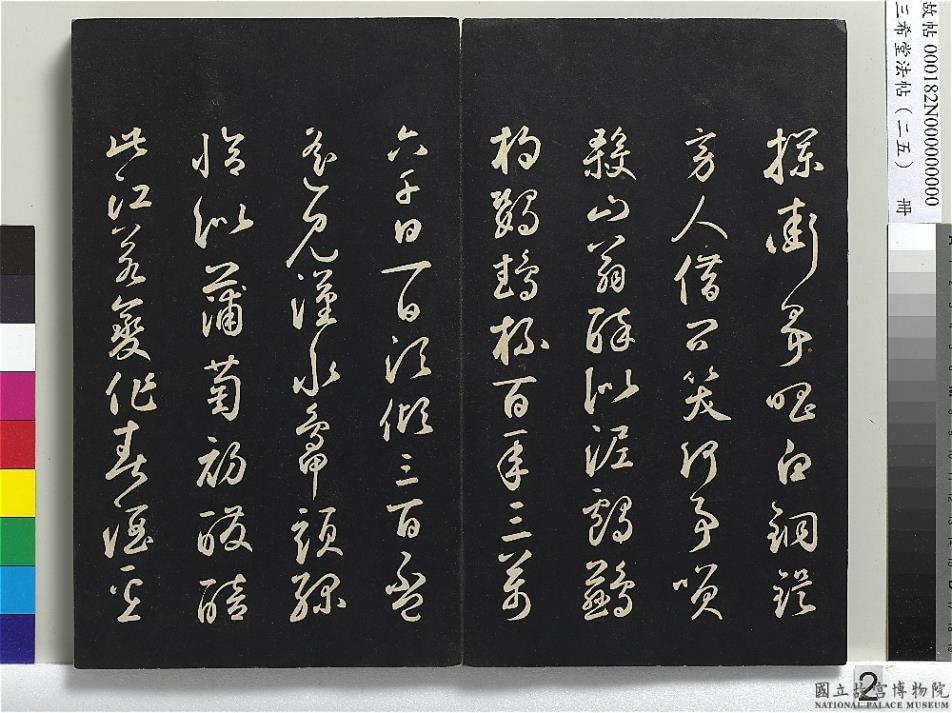 攔街爭唱白銅鍉
旁人借問笑何事咲
殺山翁醉似泥鸕鶿
杓鸚鵡杯百年三萬
六千日一日須傾三百盃
遙見漢水鴨頭綠
恰似蒲萄初醱醅
此江若變作春酒壘
故帖 000182N000000000
三希堂法帖（二五） 冊
2
國立故宮博物院
NATIONAL PALACE MUSEUM